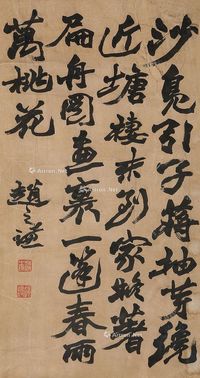 沙鳧引子蔣抽芽繞
近塘棲未到家擬著
扁舟圖畫裏一篷春雨
萬桃花
趙之謙
Artron.Net